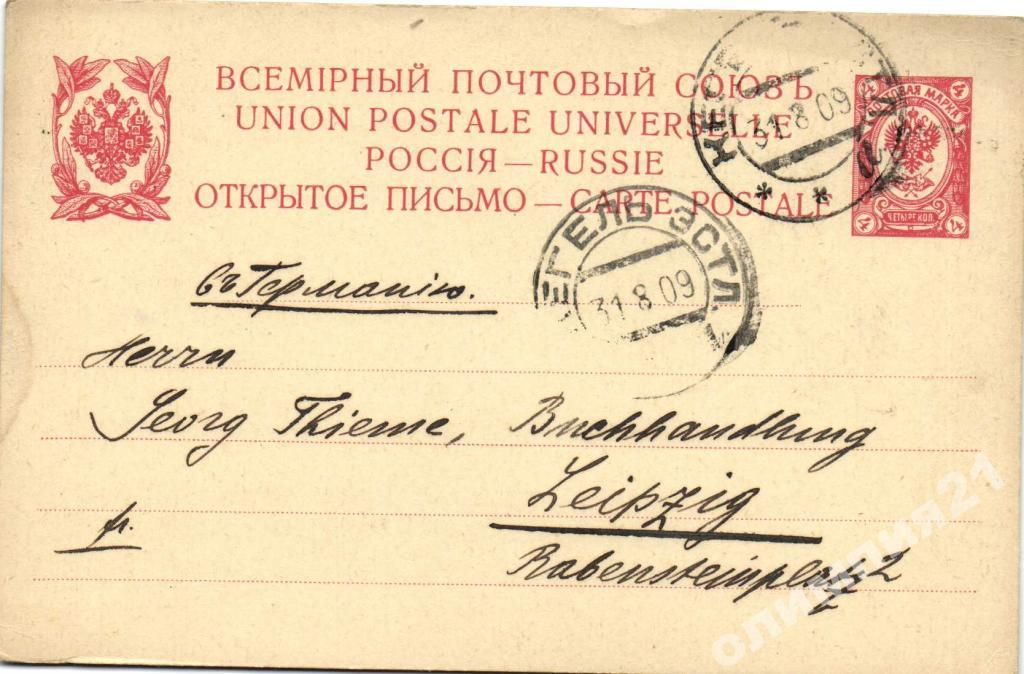 ВСЕМІРНЫЙ ПОЧТОВЫЙ СОЮЗЪ
UNION POSTALE UNIVERSELLE
РОССІЯ — RUSSIE
ОТКРЫТОЕ ПИСЬМО — CARTE POSTALE
4 4
ПОЧТОВАЯ МАРКА
ЧЕТЫРЕ КОП.
4 4
31 8 09
а
КЕГЕЛЬ ЭСТЛ.
31 8 09
въ Германію.
Herrn
Georg Thieme, Buchhandlung
Leipzig
fr.
Rabensteinplatz 2
олимпия21